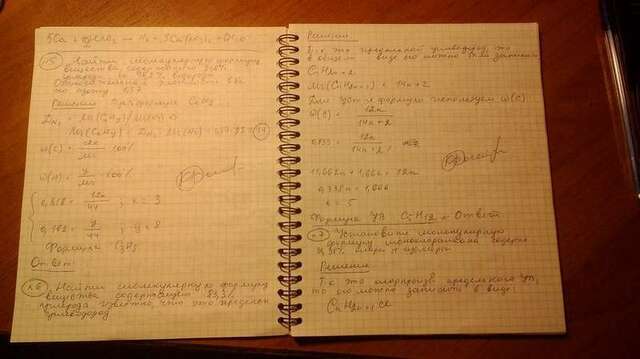 5Ca + 12HNO3 → N2 + 5Ca(NO3)2 + 6H2O
№5 Найти молекулярную формулу
вещества содержащего 81,8%
углерода и 18,2% водорода
Относительная плотность
по азоту 1,57
Решение Пусть формула CxHy
DN2 = Mr(CxHy)/Mr(N2) =>
Mr(CxHy) = DN2 · Mr(N2) = 1,57 · 28 = 44
w(C) = 12x/Mr · 100%
w(H) = y/Mr · 100%
0,818 = 12x/44 ; x = 3
0,182 = y/44 ; y = 8
Формула C3H8
Ответ:
№6 Найти молекулярную формулу
вещества содержащего 83,3%
углерода известно, что это предельн
углеводород.
Решение
Т.к. это предельной углеводород, то
в общем виде его можно записать
CnH2n+2
Mr(CnH2n+2) = 14n+2
Для УВ формулу используем w(C)
w(C) = 12n/14n+2
0,833 = 12n/14n+2
11,662n + 1,666 = 12n
0,338n = 1,666
n = 5
Формула УВ C5H12 - Ответ
№7 Установите молекулярную
формулу монохлоралкана содерж
38,38% хлора и изомеры
Решение
Т.к. это хлорпроизв. предельного УВ,
то его можно записать в виде:
CnH2n+1Cl